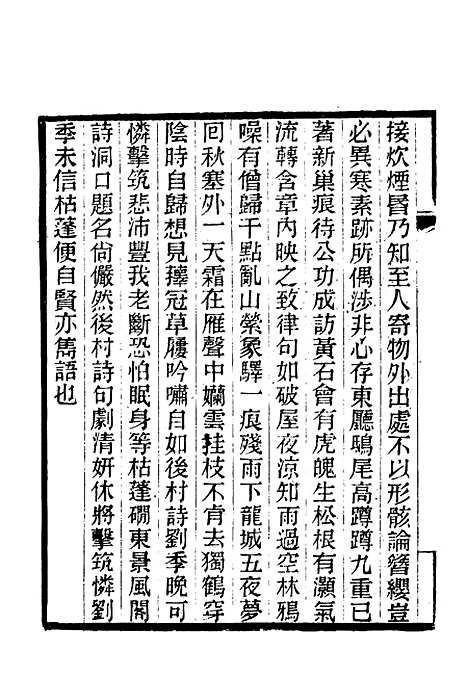 接炊煙昬乃知至人寄物外出處不以形骸論簪纓豈
必異寒素跡所偶涉非心存東廳鴟尾高蹲蹲九重已
著新巢痕待公功成訪黃石會有虎魄生松根有灝氣
流轉含章內映之致律句如破屋夜涼知雨過空林鴉
噪有僧歸千點亂山縈象驛一痕殘雨下龍城五夜夢
回秋塞外一天霜在雁聲中嬾雲挂枝不肯去獨鶴穿
陰時自歸想見籜冠草屨吟嘯自如後村詩劉季晚可
憐擊筑悲沛豐我老斷恐怕眠身等枯蓬磵東景風閣
詩洞口題名尙儼然後村詩句劇清妍休將擊筑憐劉
季未信枯蓬便自賢亦雋語也